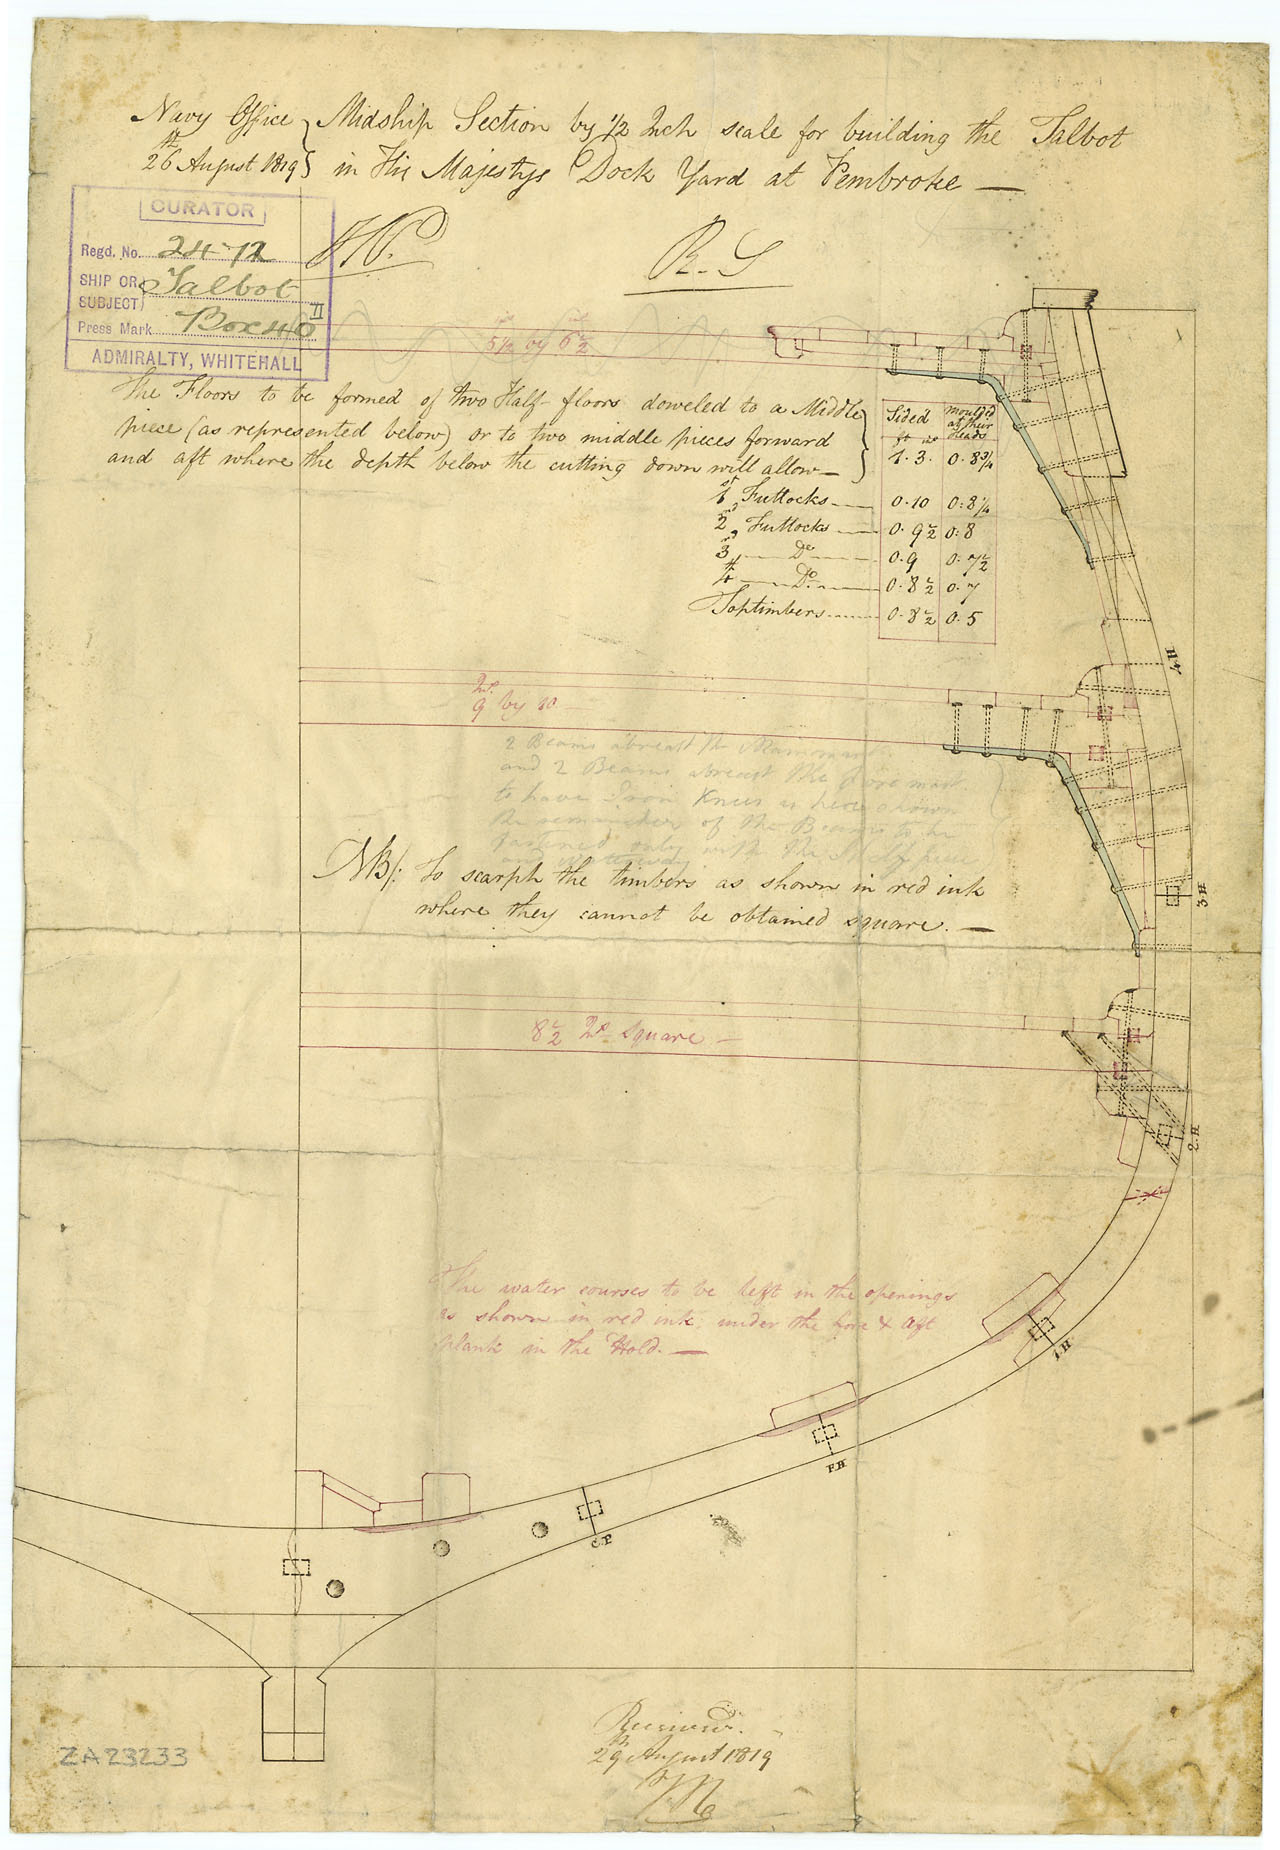 Navy Office } Midship Section by 1/2 Inch scale for building the Talbot
26th August 1819 } in His Majestys Dock Yard at Pembroke —
CURATOR
Regd. No. 2472
SHIP OR SUBJECT } Talbot
Press Mark Box 40 II
ADMIRALTY, WHITEHALL
R. S
5 1/2 by 6 1/2
The Floors to be formed of two Half-floors doweled to a Middle
piece (as represented below) or to two middle pieces forward
and aft where the depth below the cutting down will allow —
Sided moulded at their heads
ft in
1.3. 0.8 3/4
1st Futtocks 0.10 0.8 1/4
2nd Futtocks 0.9 1/2 0.8
3rd Do 0.9 0.7 1/2
4th Do 0.8 1/2 0.7
Toptimbers 0.8 1/2 0.5
4.H
Ins
9 by 10
2 Beams abreast the Mainmast
and 2 Beams abreast the Foremast
to have Iron Knees as here shown
the remainder of the Beams to be
fastened only with the Shelf piece
and waterway
NB/: To scarph the timbers as shown in red ink
where they cannot be obtained square. —
3.H
8 1/2 Ins square —
2.H
The water courses to be left in the openings
as shown in red ink, under the fore & aft
plank in the Hold. —
1.H
F.H
C.P
Received
29th August 1819
ZA23233